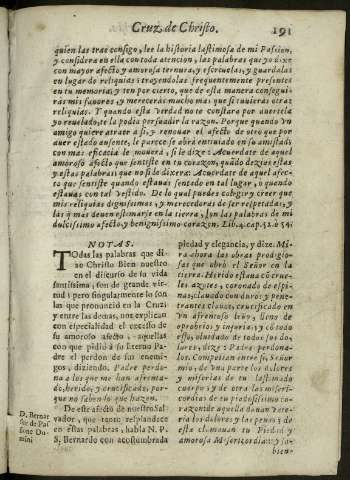 Cruz de Christo. 191
quien las trae consigo, lee la historia lastimosa de mi Passion,
y considera en ella con toda atencion, las palabras que yo dixe
con mayor afecto y amorosa ternura, y escrivelas, y guardalas
en lugar de reliquias: trayendolas frequentemente presentes
en tu memoria; y ten por cierto, que de esta manera consegui-
ràs mis favores, y mereceràs mucho mas que si tuvieras otras
reliquias. Y quando esta verdad no te constare por averte la
yo revelado, te la podia persuadir la razon. Porque quando un
amigo quiere atraer a si, y renovar el afecto de otro que por
aver estado ausente, le parece se abrà entibiado en su amistad;
con mas eficacia le moverà, si le dize: Acuerdate de aquel
amoroso afecto que sentiste en tu corazon, quãdo dezias estas
y estas palabras: que no si le dixera: Acuerdate de aquel afec-
to que sentiste quando estavas sentado en tal lugar, o quando
estavas con tal vestido. De lo qual puedes colegir y creer que
mis reliquias dignissimas, y merecedoras de ser respetadas, y
las q̃ mas deven estimarse en la tierra, son las palabras de mi
dulcissimo afecto, y benignissimo corazon. Lib. 4. cap. 52. ò 54.
NOTAS.
TOdas las palabras que di-
xo Christo Bien nuestro
en el discurso de su vida
santissima, son de grande vir-
tud; pero singularmente lo son
las que pronunciò en la Cruz;
y entre las demas, nos explican
con especialidad el excesso de
su amoroso afecto, aquellas
con que pidiò à su Eterno Pa-
dre el perdon de sus enemi-
gos, diziendo. Padre perdo-
na a los que me han afrenta-
do, herido, y crucificado, por-
que no saben lo que hazen.
De este afecto de nuestro Sal-
vador, que tanto resplandece
en estas palabras, habla N. P.
S. Bernardo con acostumbrada
D. Bernar
ser. de Pas
sione Do-
mini
piedad y elegancia, y dize. Mi-
ra ahora las obras prodigio-
sas que obrò el Señor en la
tierra. Herido estava cõ crue-
les azotes, coronado de espi-
nas, clavado con duros y pene-
trantes clavos, crucificado en
un afrentoso leño, lleno de
oprobrios y injurias; y cõ todo
esso, olvidado de todos sus do-
lores, dize: Padre perdona-
los. Competian entre si, Señor
mio, de una parte los dolores
y miserias de tu lastimado
cuerpo; y de otra las miseri-
cordias de tu piadosissimo co-
razon:
bien-